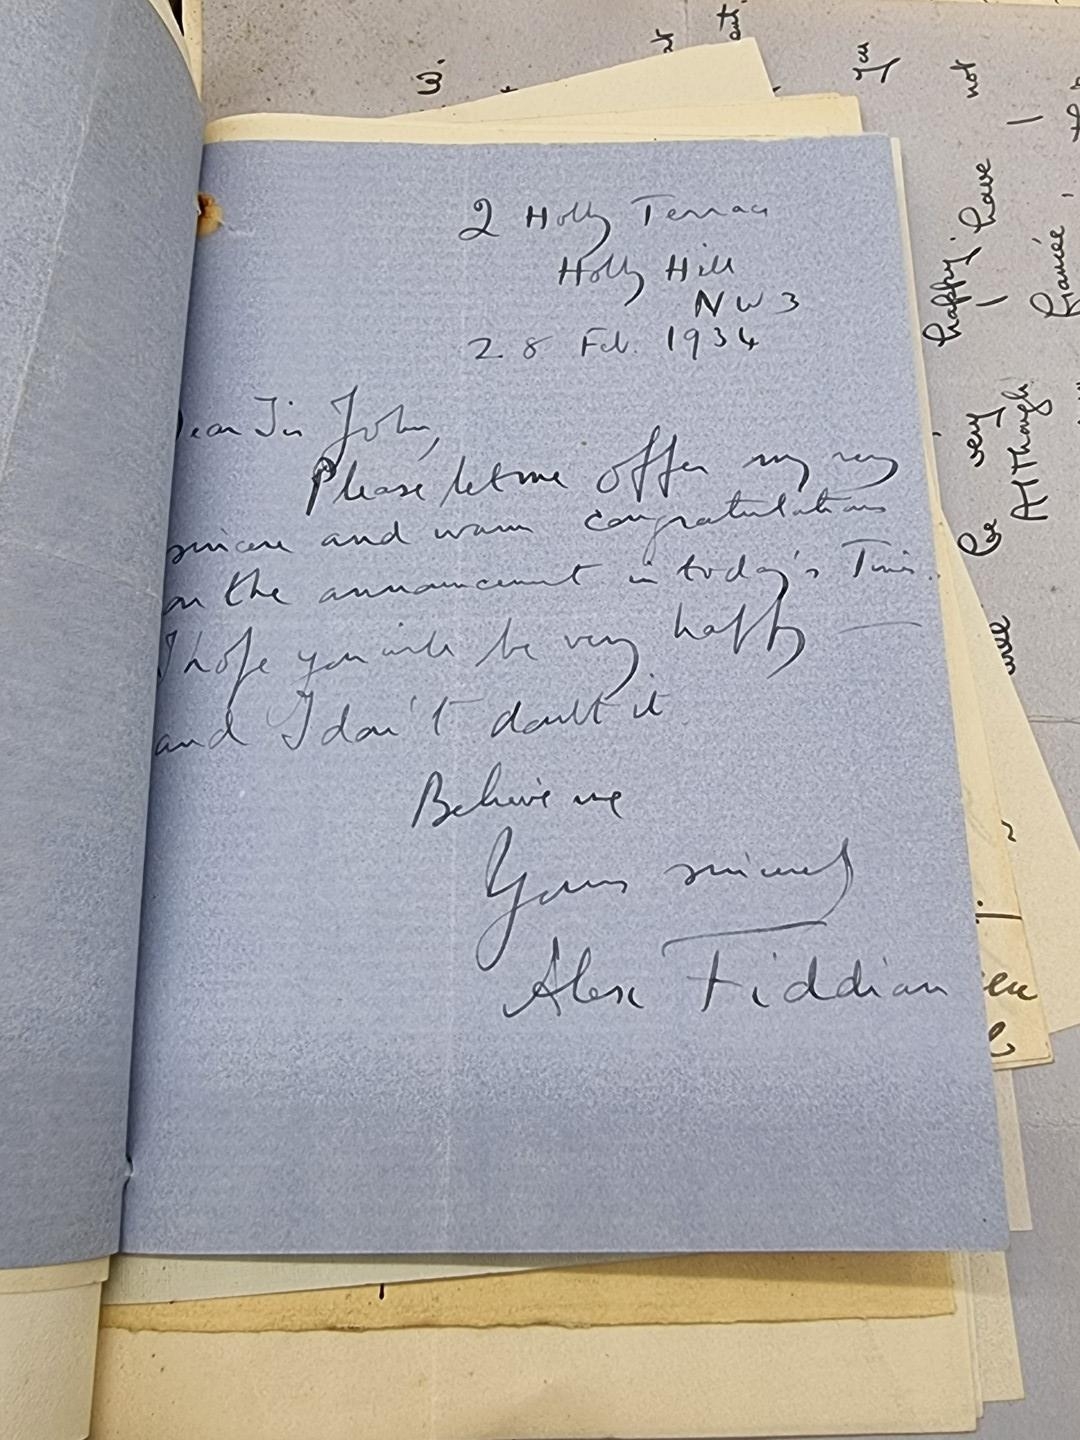 2 Holly Terrace
Holly Hill
NW3
28 Feb. 1934
Dear Sir John,
Please let me offer my very
sincere and warm congratulations
on the announcement in today's Times.
I hope you will be very happy —
and I don't doubt it
Believe me
Yours sincerely
Alex Fiddian
W.
You
not
have
happy;
I
I
fiancée,
very
Although
be